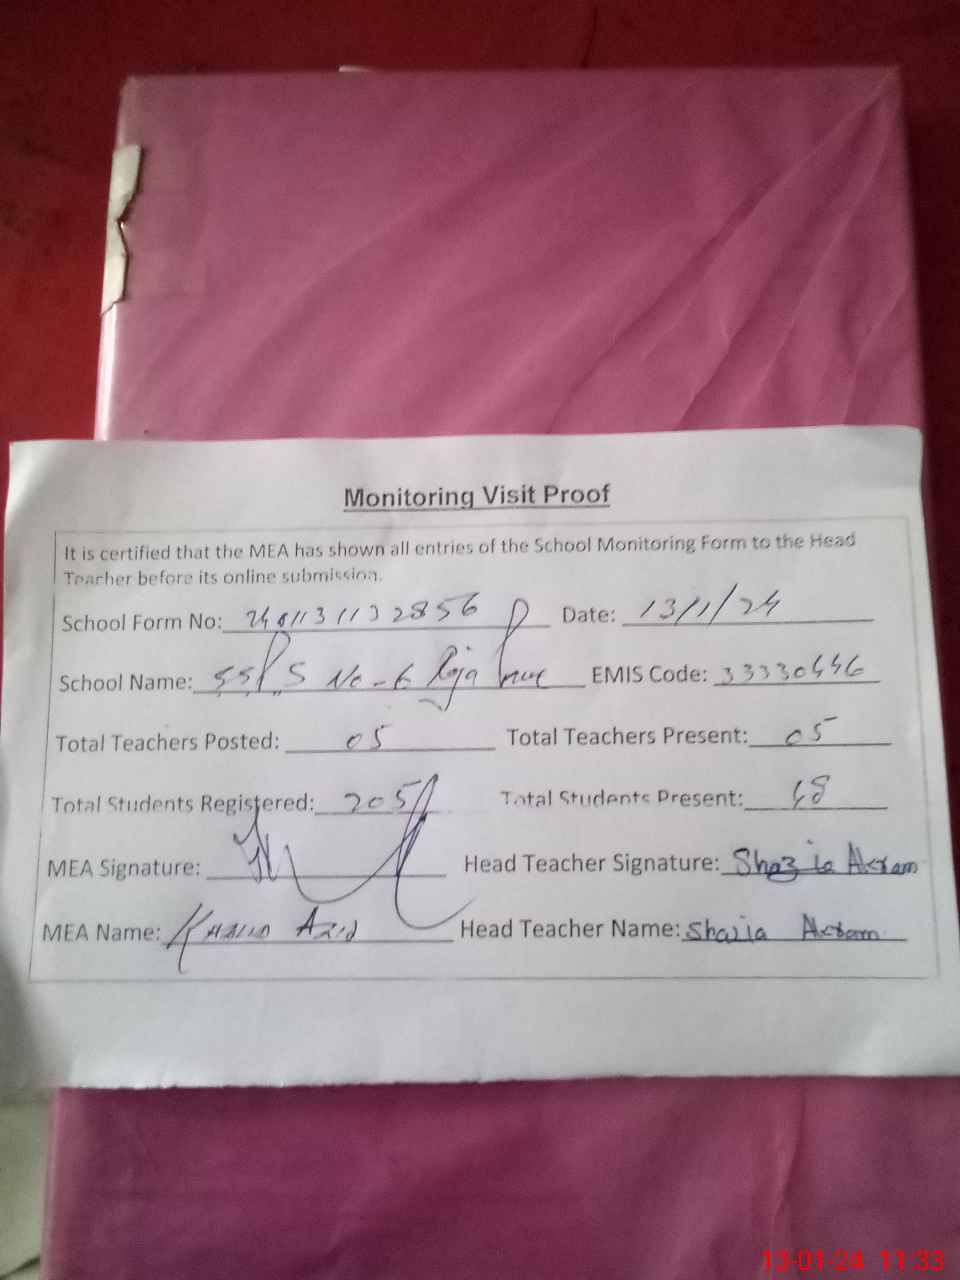 Monitoring Visit Proof
It is certified that the MEA has shown all entries of the School Monitoring Form to the Head
Teacher before its online submission.
School Form No: Date: 13/1/24
School Name: No-6 EMIS Code: 33330446
Total Teachers Posted: 05 Total Teachers Present: 05
Total Students Registered: 205 Total Students Present:
MEA Signature: Head Teacher Signature: Shazia Akram
MEA Name: Khalid Head Teacher Name: Shazia Akram
13-01-24 11:33